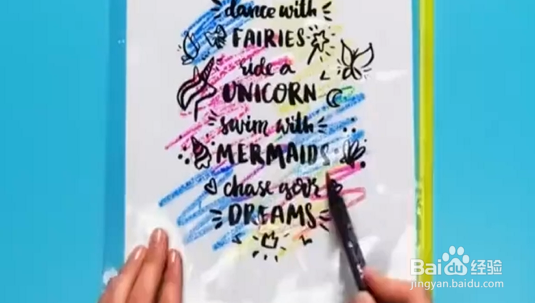 dance with
FAIRIES
ride a
UNICORN
swim with
MERMAIDS
chase your
DREAMS
Baidu 经验
jingyan.baidu.com